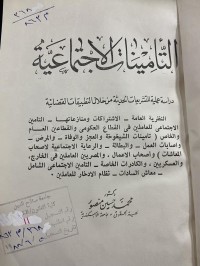 التأمينات الاجتماعية
دراسة عملية للتشريعات الحديثة من خلال التطبيقات القضائية
النظرية العامة - الاشتراكات ومنازعاتها - التأمين
الاجتماعى للعاملين فى القطاع الحكومى والقطاعين العام
والخاص ( تأمينات الشيخوخة والعجز والوفاة - والمرض -
وإصابات العمل - والبطالة - والرعاية الاجتماعية لأصحاب
المعاشات ) وأصحاب الأعمال ، والمصريين العاملين فى الخارج،
والعسكريين ، والكادرات الخاصة - التأمين الاجتماعى الشامل
- معاش السادات - نظام الادخار للعاملين .
دكتور
محمد حسين منصور